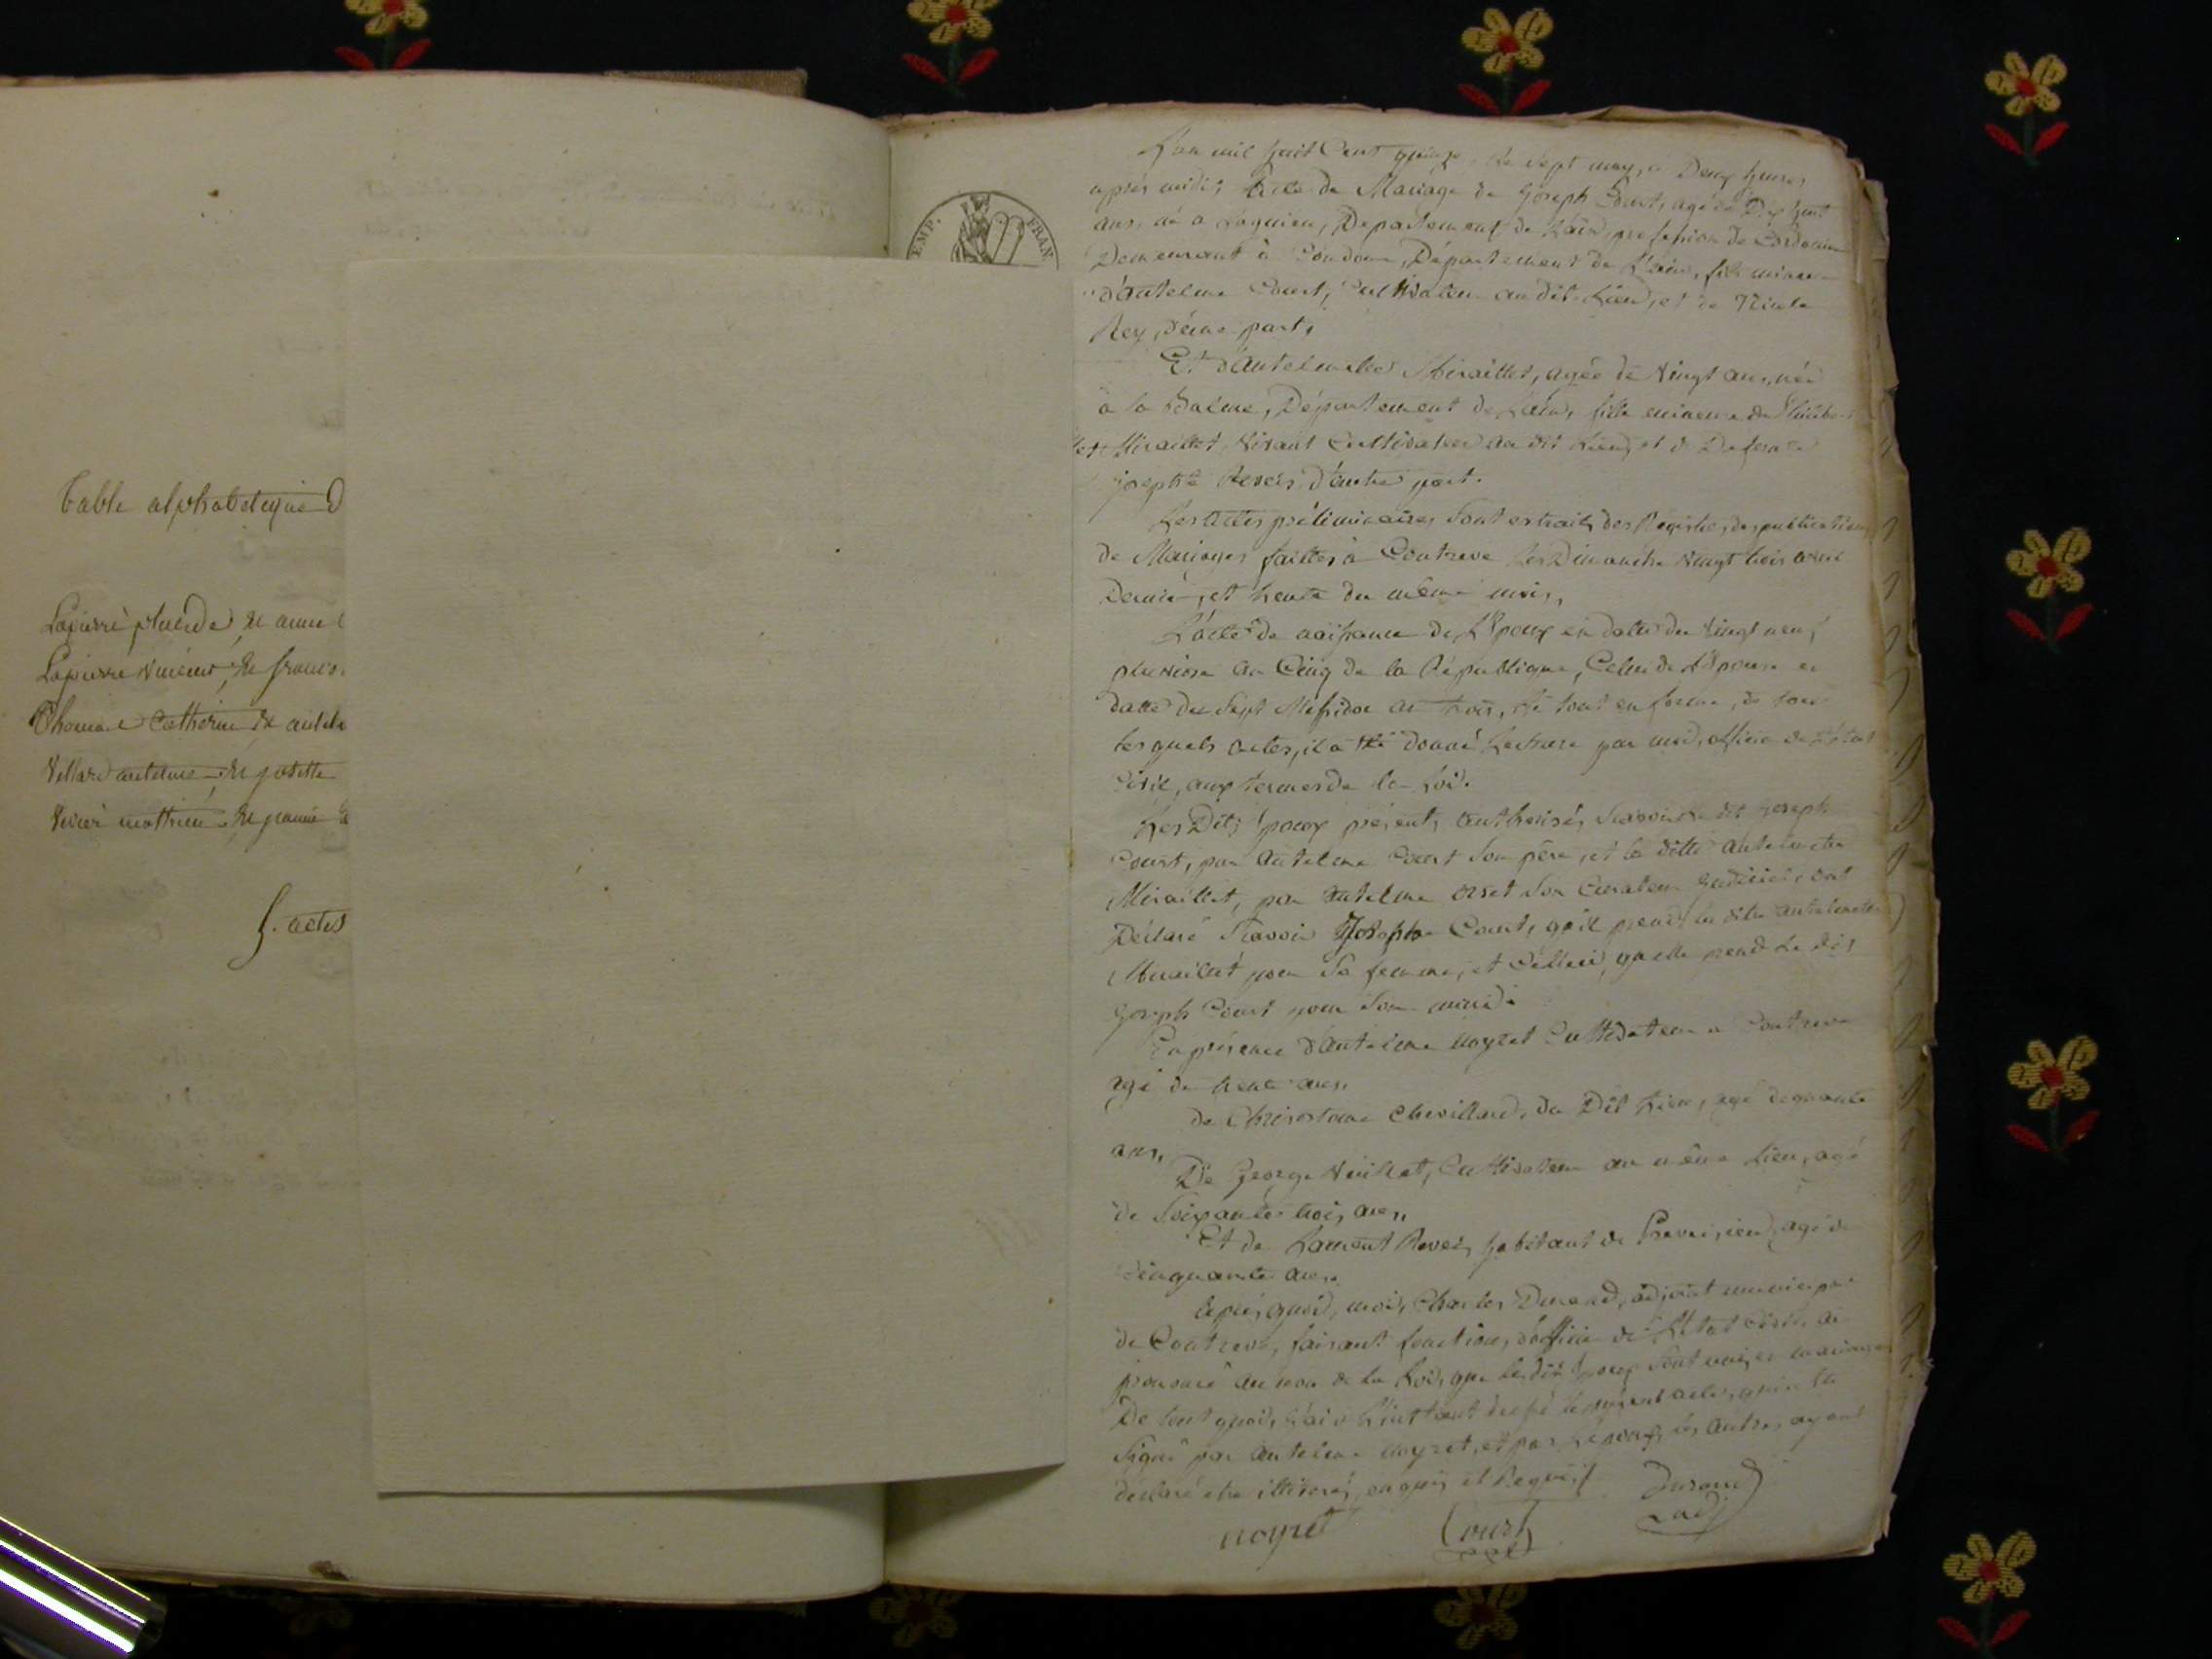 Table alphabetique D
Lapierre placide, et anne
Lapierre vincent, et franco
Thomas Catherine et antel
Villard antelme, et josette
Vivier mathieu et jeanne
5. actes
EMP. FRAN
L'an mil huit Cent quinze, le Sept may, à Deux heures
après midi, Acte de Mariage de Joseph Court, agé de Dix huit
ans, né a Lagnieu, Departement de L'ain, profession de Cordonnier
Demeurant à Condon, Département de L'ain, fils mineur
d'antelme Court, Cultivateur au dit Lieu, et de
Rey, d'une part,
Et d'Antelmette Miraillet, agée de vingt ans, née
à la Balme, Département de L'ain, fille mineure de Philibert
Miraillet, vivant Cultivateur au dit Lieu, et de Defunte
josephte Revers d'autre part.
Les Actes préliminaires Sont extraits des Registres des publications
de Mariages faittes à Contrevoz Les Dimanche vingt trois avril
Dernier, et trente du même mois,
L'acte de naissance de L'Epoux en datte du vingt neuf
pluviose an Cinq de la République, Celui de L'Epouse en
datte du Sept Messidor an trois, Le tout en forme, de tous
lesquels actes, il a été donné Lecture par moi, officier de L'état
Civil, aux termes de la Loi.
Les Dits Epoux présents, authorisés, Scavoir Le dit Joseph
Court, par Antelme Court Son père, et la ditte Antelmette
Miraillet, par Antelme orset Son Curateur judiciel, ont
Déclaré Scavoir Joseph Court, qu'il prend la ditte Antelmette
Miraillet pour Sa femme, et Celleci, qu'elle prend Le dit
Joseph Court pour Son mari.
En présence d'Antelme noyret Cultivateur a Contrevoz
agé de trente ans,
de Chrisostome Chevillard, du Dit Lieu, agé de quarante
ans,
De George vuillet, Cultivateur au même Lieu, agé
de Soixante trois ans,
Et de Laurent Revers, habitant de Preveyzieu, agé de
Cinquante ans.
Après quoi, moi, Charles Durand, adjoint municipal
de Contrevoz, faisant fonction, d'officier de L'état Civil, ai
prononcé au nom de la Loi, que les dits Epoux Sont unis en mariage
De tout quoi, j'ai à L'instant dressé le présent acte, qui a été
Signé par Antelme noyret, et par L'epoux, les autres ayant
declaré etre illitérés, enquis et Requis
noyret Court Durand
adj